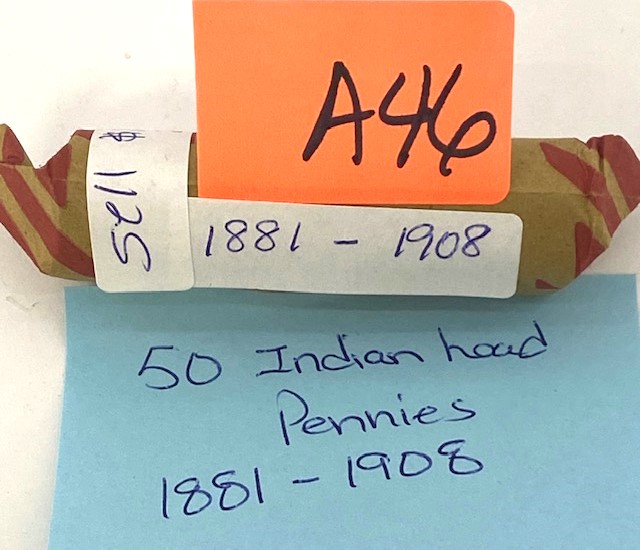 A46
Sell $
1881 - 1908
50 Indian head
Pennies
1881 - 1908